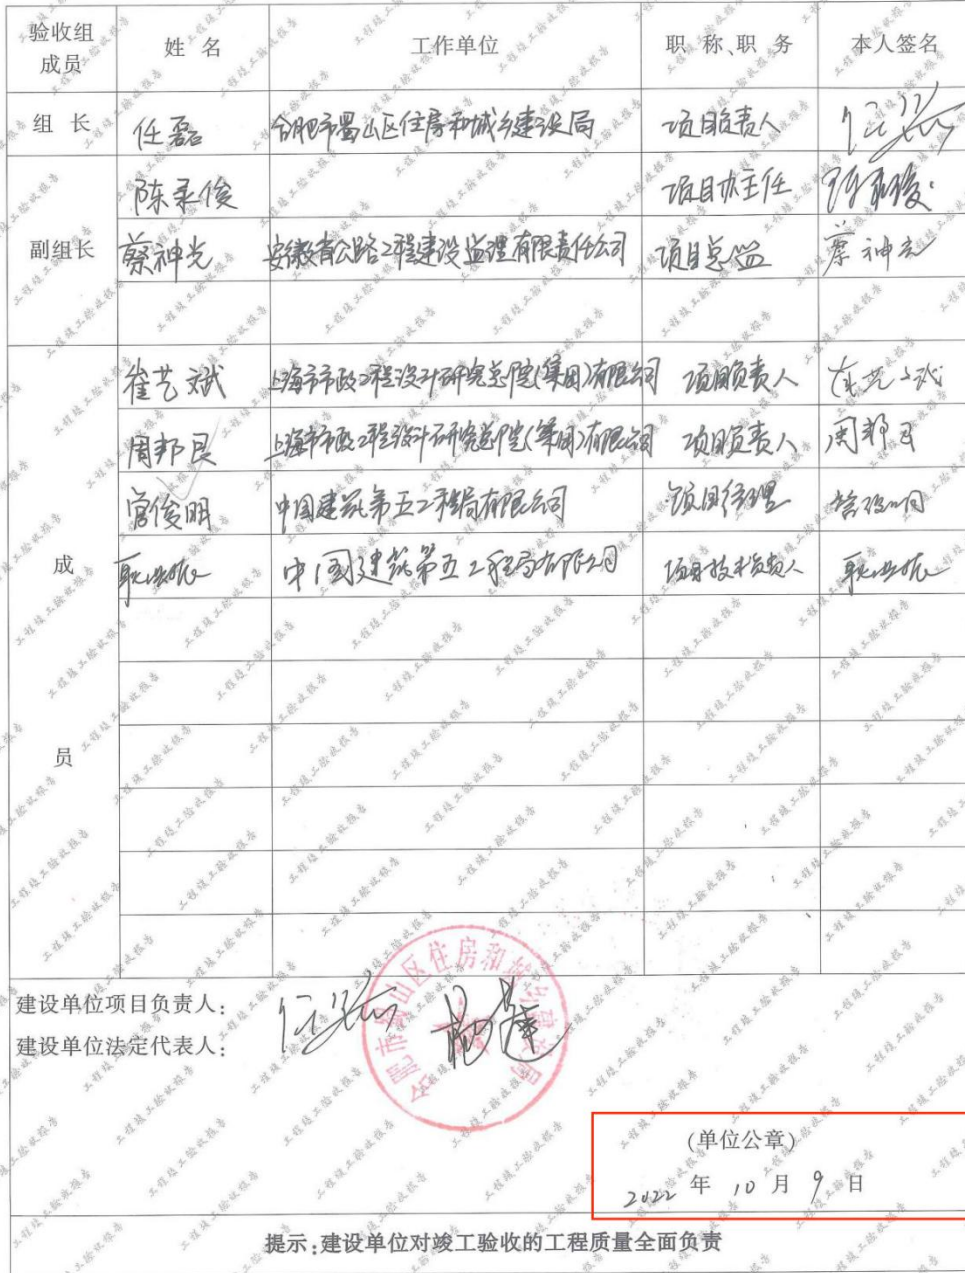 验收组成员 姓 名 工作单位 职 称、职 务 本人签名
组 长 任磊 合肥市蜀山区住房和城乡建设局 项目负责人
陈录俊 项目办主任
副组长 蔡神光 安徽省公路工程建设监理有限责任公司 项目总监 蔡神光
崔艺斌 上海市市政工程设计研究总院(集团)有限公司 项目负责人 崔艺斌
周邦民 上海市市政工程设计研究总院(集团)有限公司 项目负责人 周邦民
管俊明 中国建筑第五工程局有限公司 项目经理
成 中国建筑第五工程局有限公司 项目技术负责人
员
建设单位项目负责人:
建设单位法定代表人:
合肥市蜀山区住房和城乡建设局
(单位公章)
2022 年 10 月 9 日
提示:建设单位对竣工验收的工程质量全面负责
工程竣工验收报告